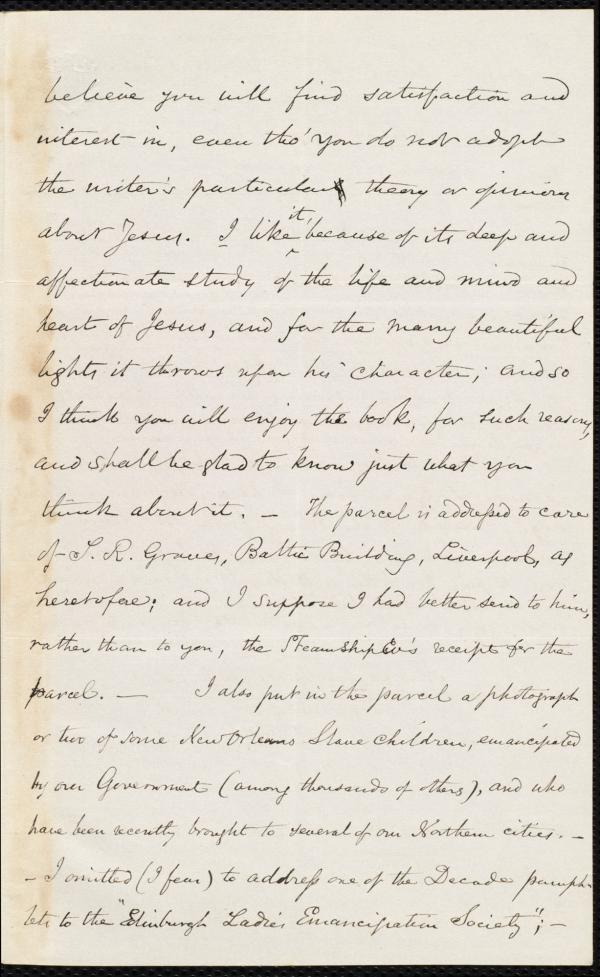 believe you will find satisfaction and
interest in, even tho' you do not adopt
the writer's particular theory or opinion
about Jesus. I like it, because of its deep and
affectionate study of the life and mind and
heart of Jesus, and for the many beautiful
lights it throws upon his character; and so
I think you will enjoy the book, for such reasons,
and shall be glad to know just what you
think about it. — The parcel is addressed to care
of S. R. Graves, Baltic Building, Liverpool, as
heretofore; and I suppose I had better send to him,
rather than to you, the Steamship Co's receipt for the
parcel. — I also put in the parcel a photograph
or two of some New Orleans Slave children, emancipated
by our Government (among thousands of others), and who
have been recently brought to several of our Northern cities. —
– I omitted (I fear) to address one of the Decade pamph-
lets to the "Edinburgh Ladies Emancipation Society"; —